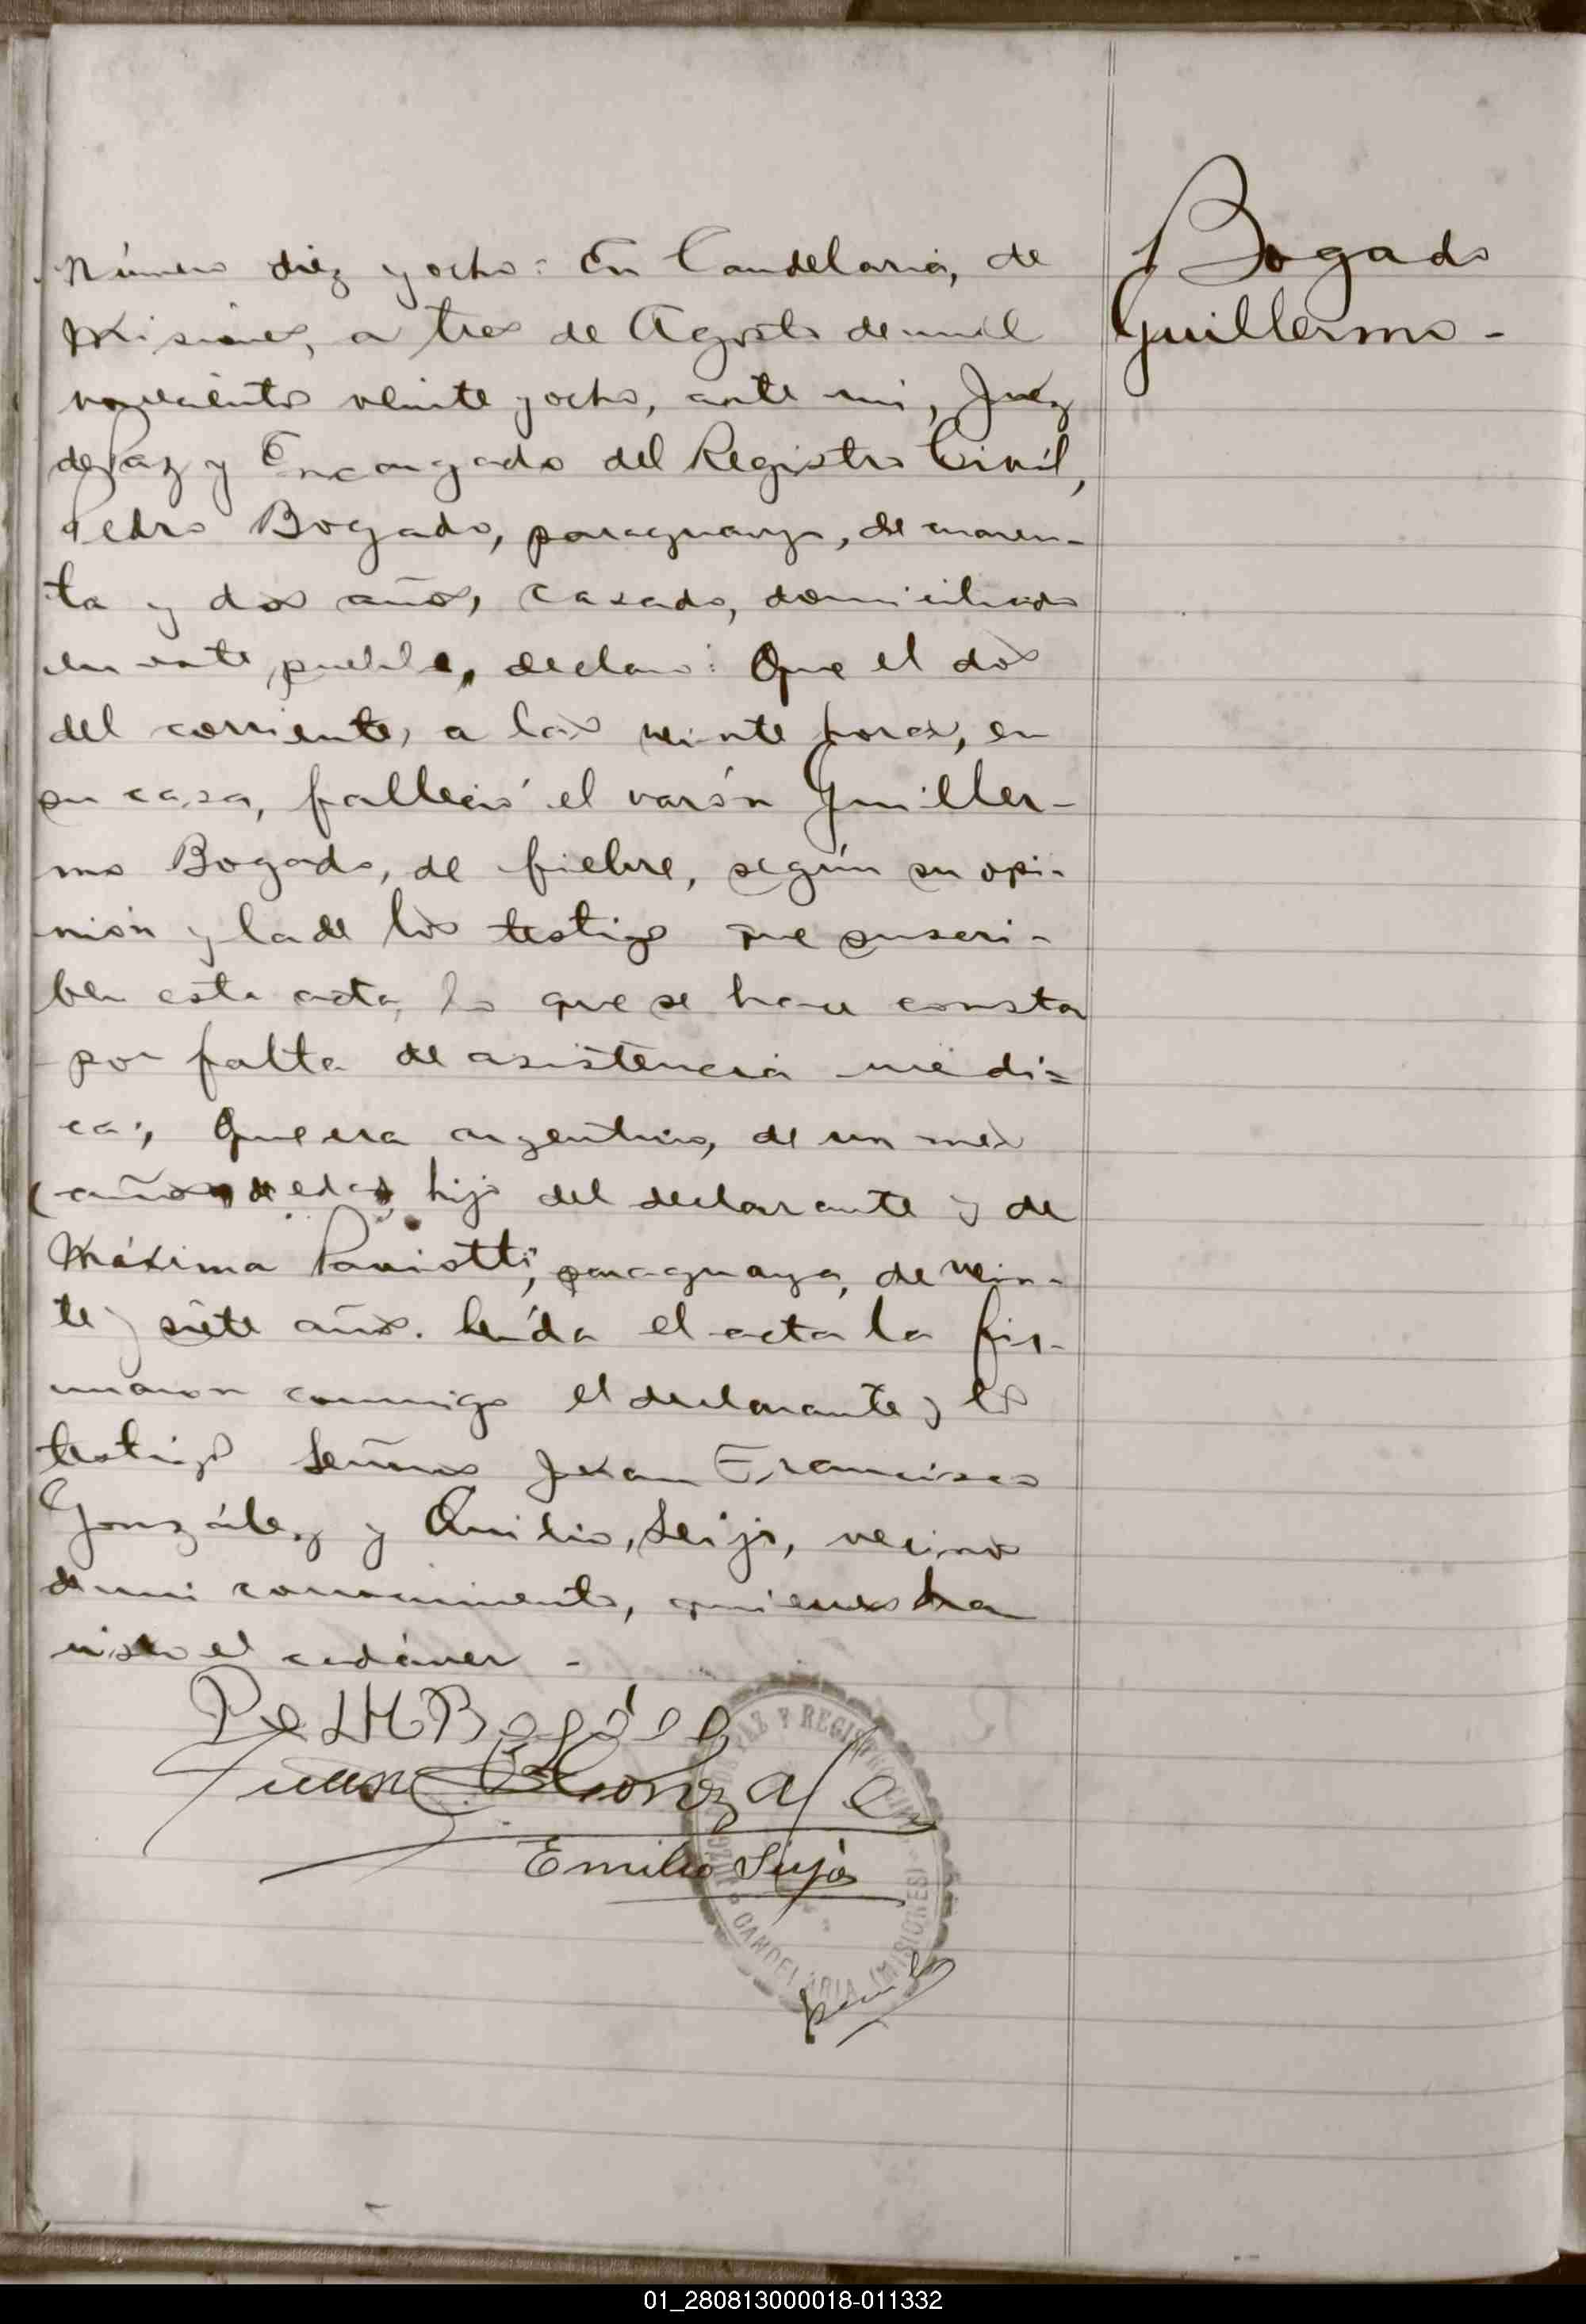 Número diez y ocho: En Candelaria, de
Misiones, a tres de Agosto de mil
novecientos veinte y ocho, ante mi, Juez
de Paz y Encargado del Registro Civil,
Pedro Bogado, paraguayo, de cuaren-
ta y dos años, casado, domiciliado
en este pueblo, declaró: Que el dos
del corriente, a las veinte horas, en
su casa, falleció el varón Guiller-
mo Bogado, de fiebre, según su opi-
nión y la de los testigos que suscri-
ben esta acta, lo que se hace constar
por falta de asistencia médi=
ca; Que era argentino, de un mes
(años) de edad, hijo del declarante y de
Máxima Paviotti, paraguaya, de vein-
te y siete años. Leída el acta la fir-
maron conmigo el declarante y los
testigos Señores Juan Francisco
González y Emilio Seijo, vecinos
de mi conocimiento, quienes han
visto el cadáver -
Bogado
Guillermo -
Juan Gonzale
Emilio
PAZ Y REGISTRO CIVIL
CANDELARIA (MISIONES)
01_280813000018-011332